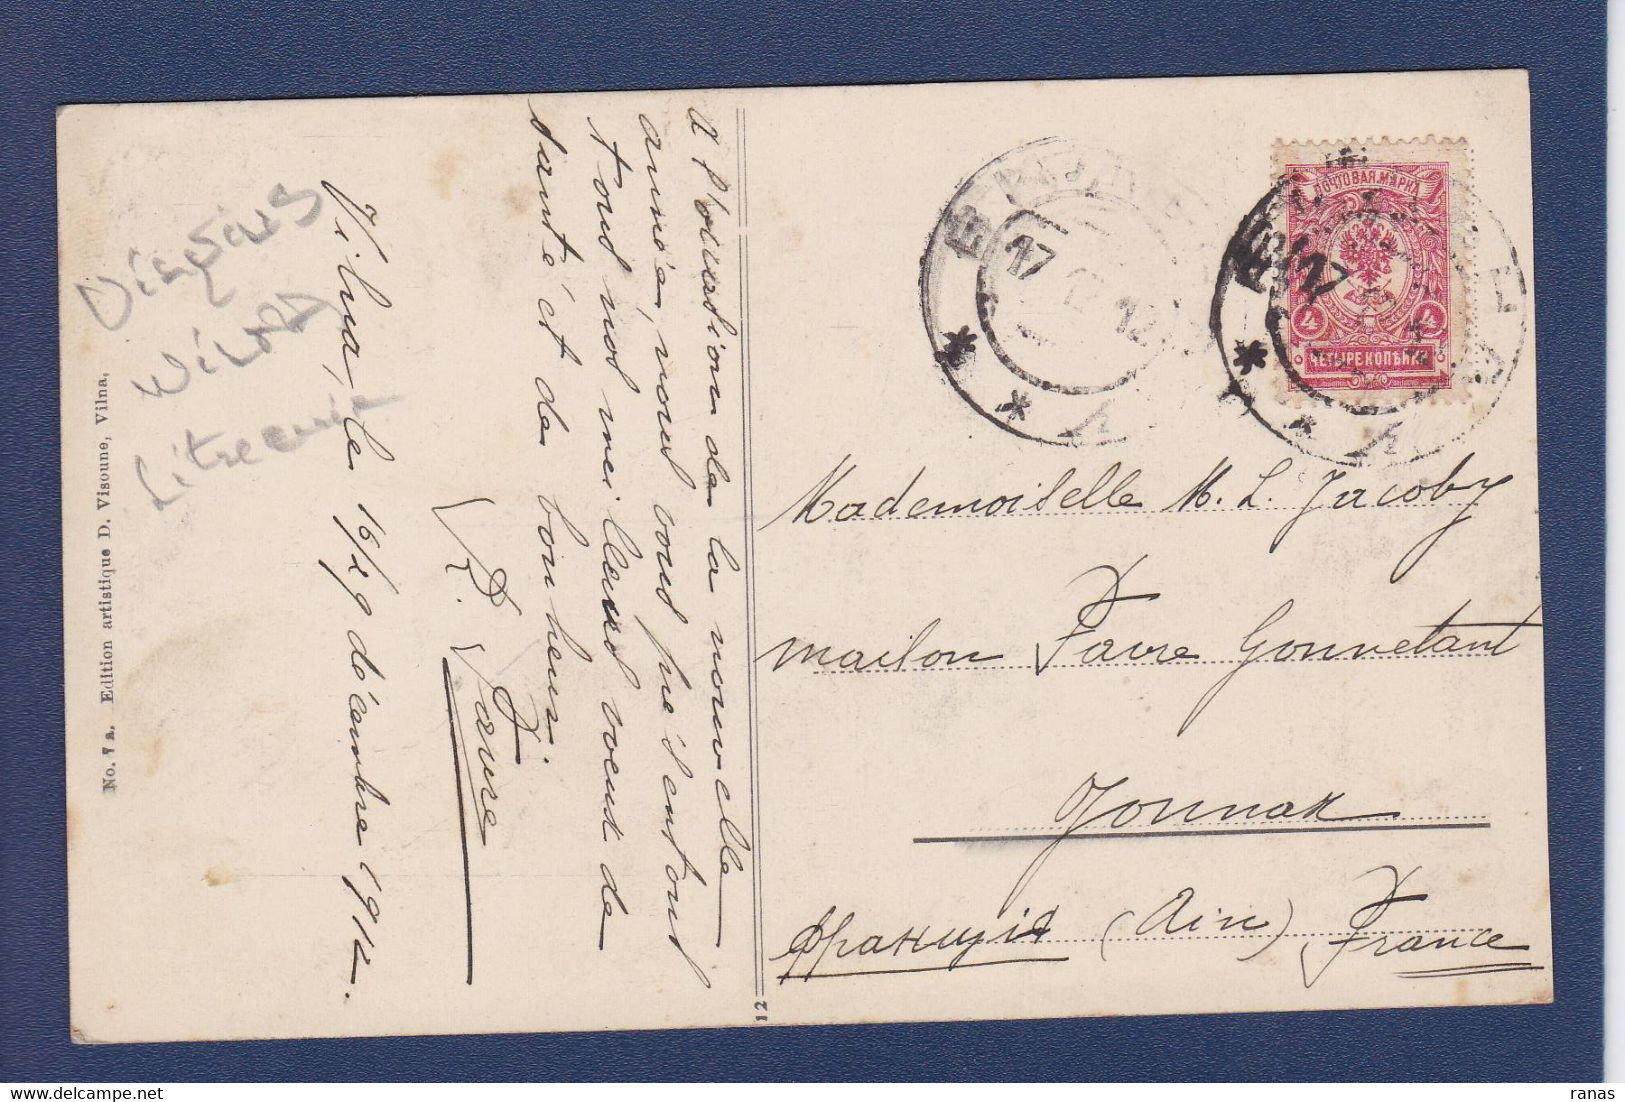 A l'occasion de la nouvelle
année, nous vous présentons
tous nos meilleurs voeux de
santé et de bonheur.
R. Favre
Vilna, le 16/29 décembre 1912.
Vilnius
Wilna
No. 7 a. Edition artistique D. Visoune, Vilna.
12
17 12 12
ПОЧТОВАЯ МАРКА
4 4
ЧЕТЫРЕ КОПѢЙКИ
Mademoiselle M. L. Jacoby
maison Favre Gonnetant
Jonnax
Франція (Ain) France
ranas